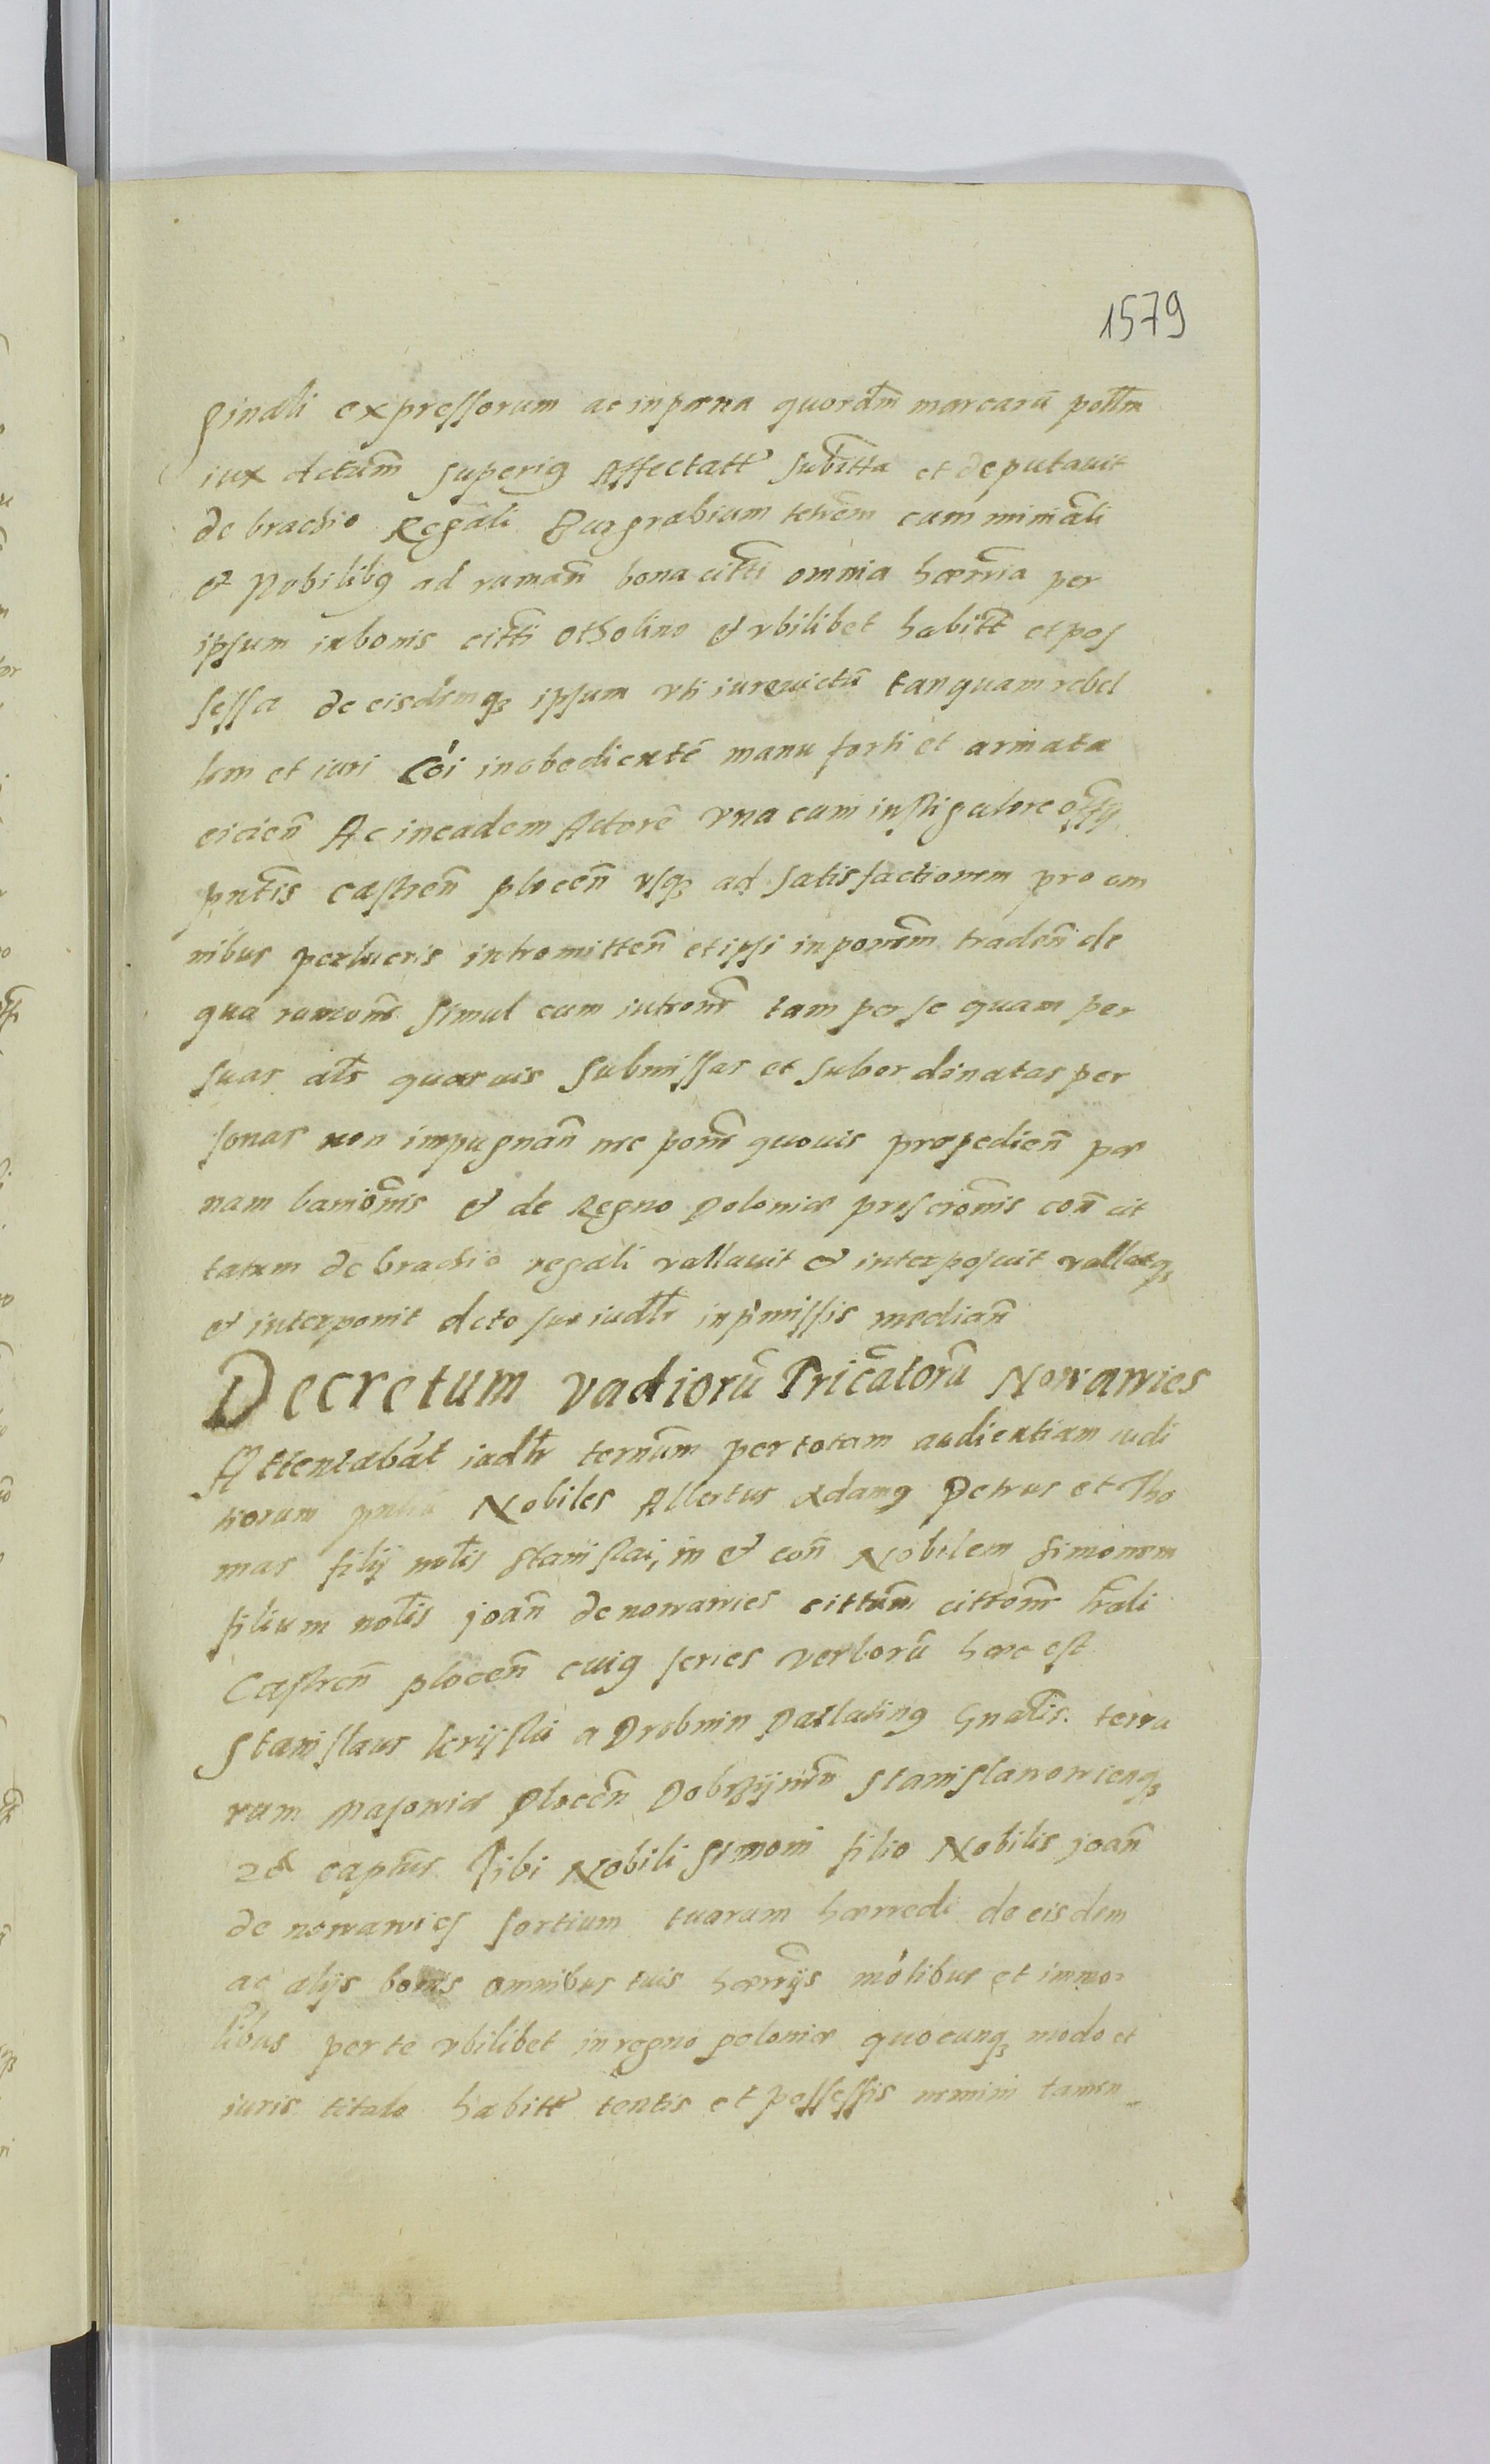 1579
ginali expressorum ac in pœna quordm̃ marcarũ pollm̃
iux dctum̃ superig Affectatt subitta et deputauit
de brachio Regali Burgrabium terrem̃ cum miniali
et Nobilibg ad ruman̄ bona citti omnia hœrria per
ipsum in bonis citti otholino et vbilibet habitt et pos
sessa de eisdemqz ipsum vti iurevictũ tanquam rebel
lem et iuri Cōi inobedientē manu forti et armata
eicien̄ Ac in eadem Actorē vna cum instigatore offy
pntīs castren̄ plocen̄ vsqz ad satisfactionem pro om
nibus perlucris intromitten̄ et ipsi in ponem̃ traden̄ de
qua rumonē simul cum intronē tam per se quam per
suas als quasuis submissas et subordinatas per
sonas non impugnan̄ nec ponē quouis prœpedien̄ pœ
nam banionīs et de Regno Poloniæ proscrionīs con̄ cit
tatum de brachio regali vallauit et interposuit vallatqz
et interponit dcto suo iudlr in p̄missis median̄
Decretum vadiorũ Tricatorũ Nowawies
Attentabāt iudlr ternum̃ per totam audientiam iudi
tiorum Nobiles Albertus Adamg Petrus et Tho
mas filij nolis Stanislai, in et con̄ Nobilem Simonem
filium nolis joan̄ de nowawies cittum̃ cittonē trali
Castren̄ plocen̄ cuig series verborũ hœc est
Stanislaus kryski a Drobnin Pallating Gnalis. terra
rum Masowiæ Plocen̄ Dobrzynen̄ Stanislawowienqz
2ͨ captus Tibi Nobili Simoni filio Nobilis joan̄
de nowawies sortium tuarum hœrredi de eisdem
ac alijs bonis omnibus tuis hœrrijs mōtibus et immo:
libus per te vbilibet in regno poloniæ quocunqz modo et
iuris titulo habitt tentis et possessis nemini tamen